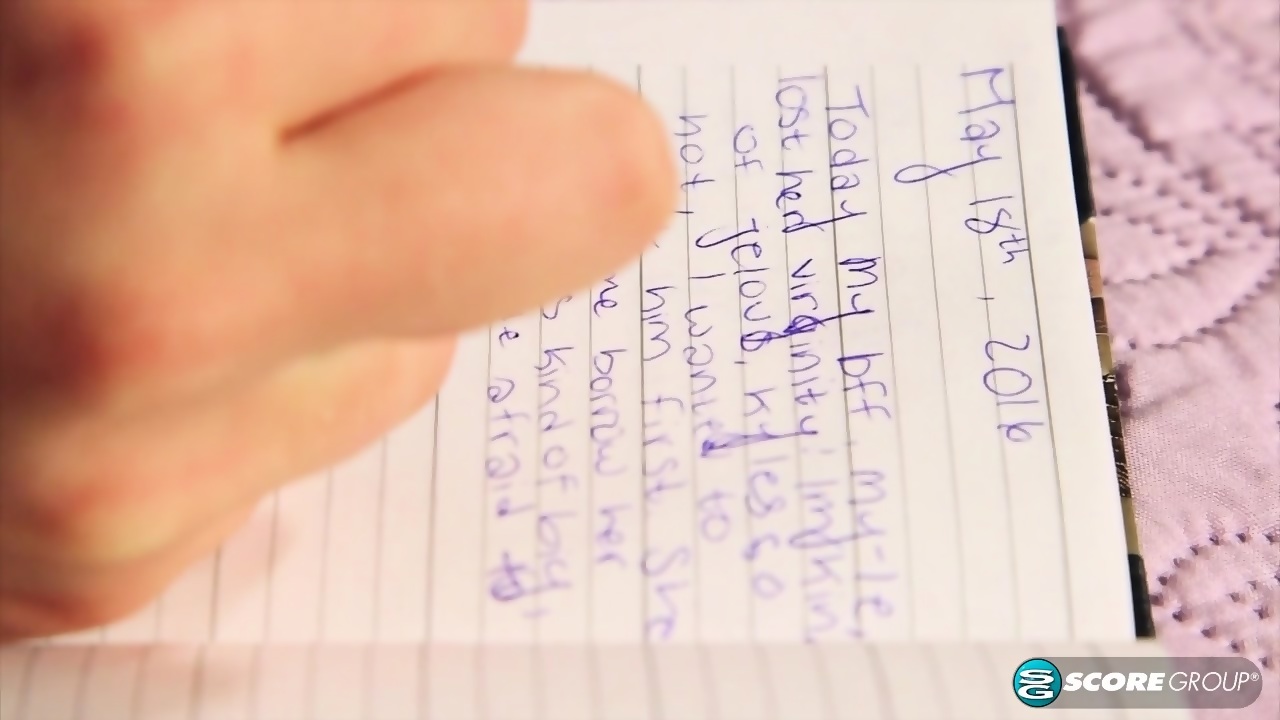 May 18th, 2016
Today my bff, my-le,
lost her virginity! Im kin
of jelous, kyles so
hot, I wanted to
him first She
borrow her
kind of big,
afraid to,
SCORE GROUP®